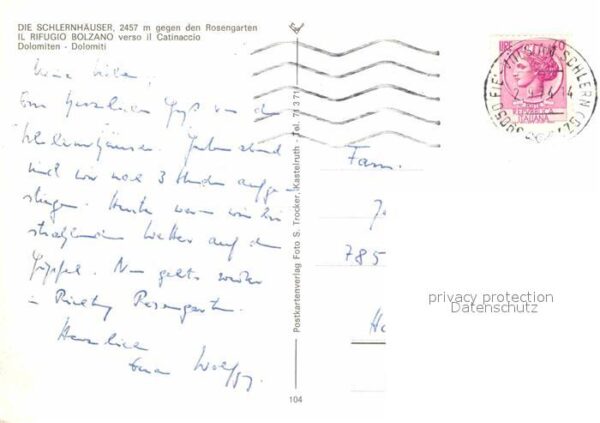 DIE SCHLERNHÄUSER, 2457 m gegen den Rosengarten
IL RIFUGIO BOLZANO verso il Catinaccio
Dolomiten - Dolomiti
Meine Lieben,
Ein herzlichen Gruß von den
Schlernhäusern. Gestern abend
sind wir nach 3 Stunden aufge-
stiegen. Heute waren wir bei
strahlendem Wetter auf dem
Gipfel. Nun gehts weiter
in Richtung Rosengarten.
Herzlich
Euer Wolfgg.
104
Postkartenverlag Foto S. Trocker, Kastelruth - Tel. 71371
Fam.
785
LIRE
REPUBBLICA
ITALIANA
39050 FIE
SCHLERN (BZ)
privacy protection
Datenschutz